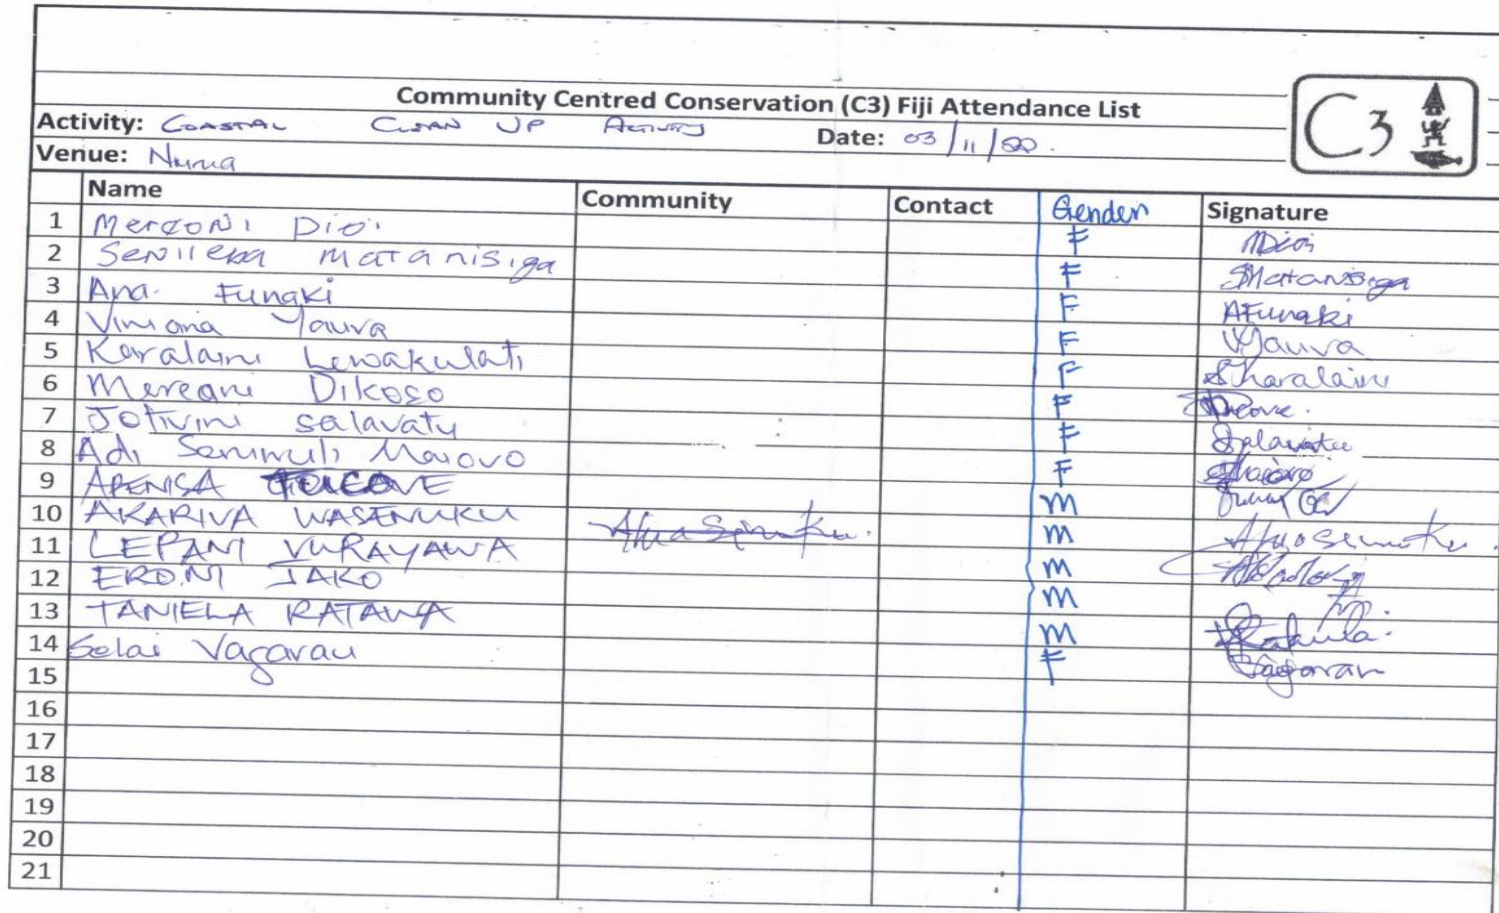 Community Centred Conservation (C3) Fiji Attendance List
C3
Activity: COASTAL CLEAN UP ACTIVITY Date: 03/11/20.
Venue: Nurua
Name Community Contact Gender Signature
1 Mereoni Dioi F MDioi
2 Senileba Matanisiga F SMatanisiga
3 Ana Funaki F AFunaki
4 Viniana Yauva F VYauva
5 Karalaini Lewakulati F Karalaini
6 Mereani Dikoso F
7 Jotivini salavatu F Salavatu
8 Adi Senimuli Maiovo F
9 APENISA M
10 AKARIVA WASENUKU M
11 LEPANI VURAYAWA M
12 ERONI JAKO M
13 TANIELA RATAWA M
14 Selai Vagarau F Vagarau
15
16
17
18
19
20
21